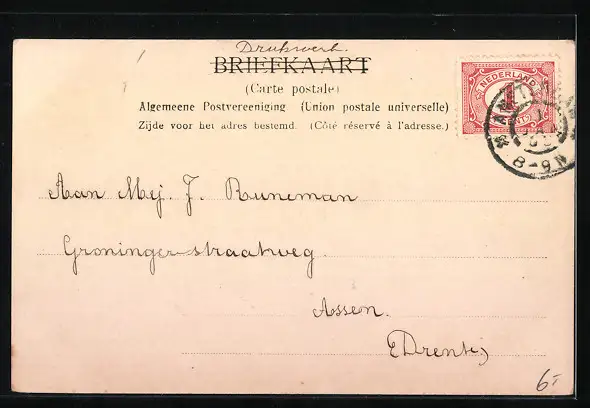 Drukwerk.
BRIEFKAART
(Carte postale)
Algemeene Postvereeniging (Union postale universelle)
Zijde voor het adres bestemd. (Côté réservé à l'adresse.)
NEDERLAND
1
CENT
8-9N
Aan Mej. J. Runeman
Groninger-straatweg.
Assen.
(Drente)
6.-